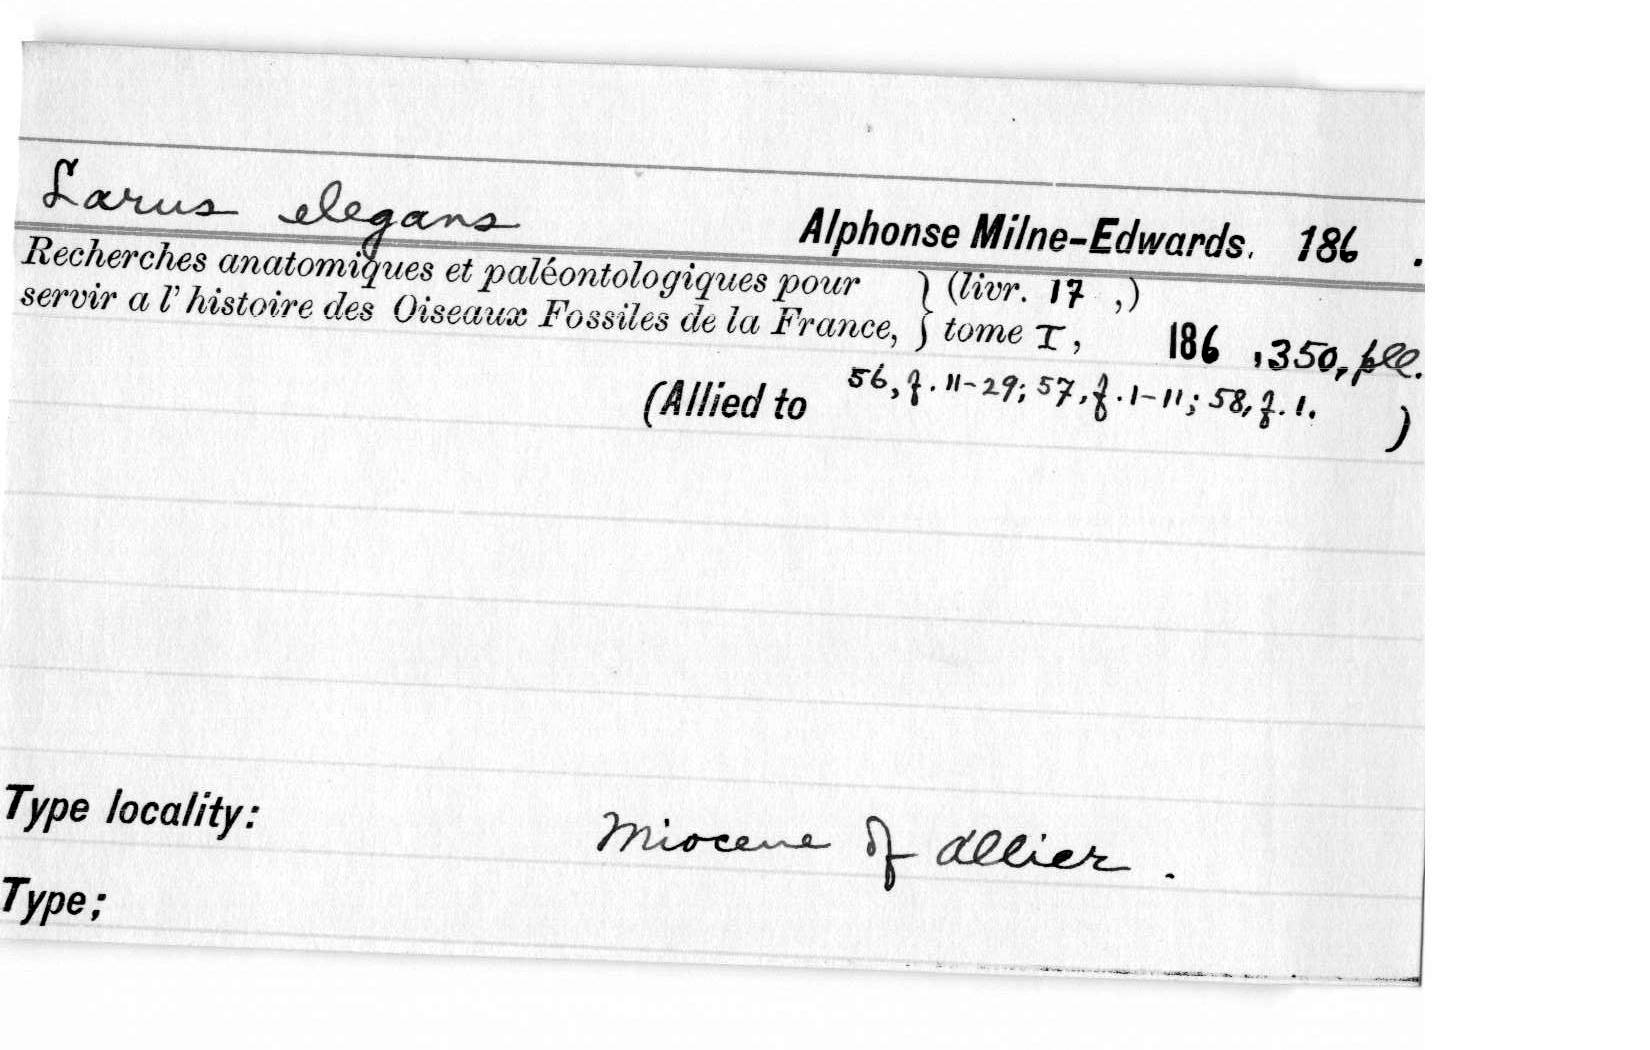 Larus elegans Alphonse Milne-Edwards. 186 .
Recherches anatomiques et paléontologiques pour } (livr. 17 ,)
servir a l' histoire des Oiseaux Fossiles de la France, } tome I, 186 , 350, pll.
(Allied to 56, f. 11-29; 57, f. 1-11; 58, f. 1. )
Type locality: Miocene of Allier .
Type;